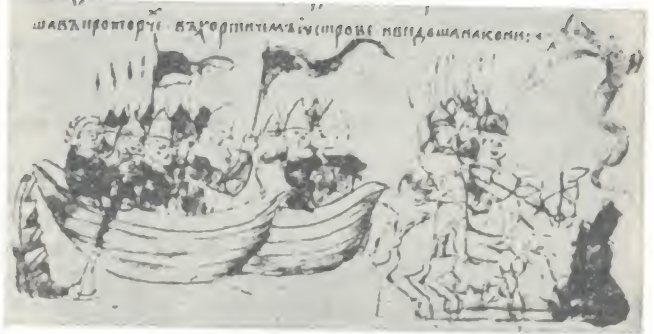 шавъпротолче · въхортичемъѹстрове ивидошанакони :